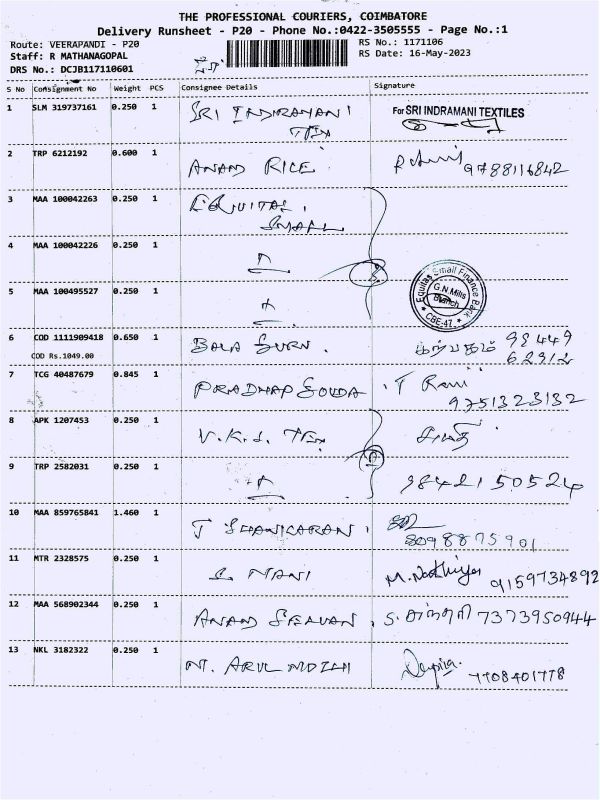 THE PROFESSIONAL COURIERS, COIMBATORE
Delivery Runsheet - P20 - Phone No.:0422-3505555 - Page No.:1
Route: VEERAPANDI - P20 RS No.: 1171106
Staff: R MATHANAGOPAL RS Date: 16-May-2023
DRS No.: DCJB117110601
S No Consignment No Weight PCS Consignee Details Signature
1 SLM 319737161 0.250 1 SRI INDRAMANI For SRI INDRAMANI TEXTILES
TEX
2 TRP 6212192 0.600 1 ANAND RICE 9788116842
3 MAA 100042263 0.250 1 EQUITAS
SMALL
4 MAA 100042226 0.250 1
5 MAA 100495527 0.250 1 Equitas Small Finance Bank
G.N Mills
Branch
* CBE-47 *
6 COD 1111909418 0.650 1 BALA GURU கற்பகம் 98449
COD Rs.1049.00 62912
7 TCG 40487679 0.845 1 PRADHAP GOUDA T Rani
9751323132
8 APK 1207453 0.250 1 V.K.S. TEX
9 TRP 2582031 0.250 1 9842150524
10 MAA 859765841 1.460 1 J SHANKARAN
8098875901
11 MTR 2328575 0.250 1 MANI 9159734892
12 MAA 568902344 0.250 1 ANAND SELVAN 7373950944
13 NKL 3182322 0.250 1 ARUL MOZHI 7708401778